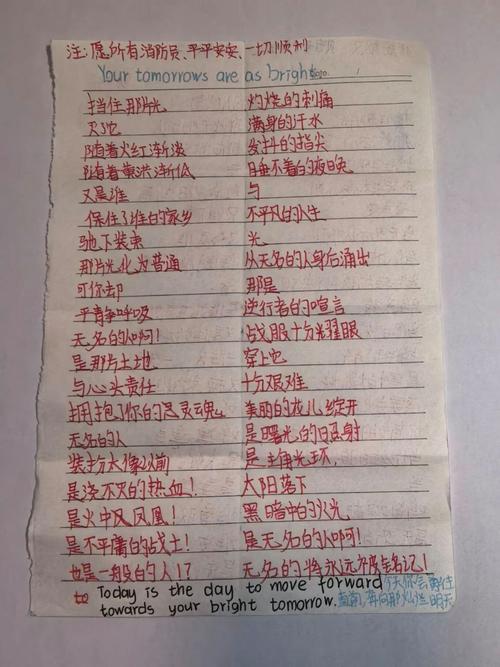 注:愿所有消防员、平平安安、一切顺利
Your tomorrows are as bright
挡住那阳光
灭它
随着火红渐淡
随着黄洪渐低
又是谁
保住了谁的家乡
驰下装束
那片光化为普通
可你却
平静呼吸
无名的人啊!
是那片土地
与心头责任
拥抱了你的灵魂。
无名的人
装扮太像以前
是浇不灭的热血!
是火中凤凰!
是不平庸的战士!
也是一般的人!?
灼烧的刺痛
满身的汗水
发抖的指尖
睡不着的夜晚
与
不平凡的人生
光
从无名的人身后涌出
那是
逆行者的喧言
战服十分耀眼
穿上它
十分艰难
美丽的花儿绽开
是曙光的照射
是主角光环,
太阳落下
黑暗中的火光
是无名的人啊!
无名的将永远被铭记!
to Today is the day to move forward
towards your bright tomorrow.
今天你会勇往
直前,奔向那灿烂明天